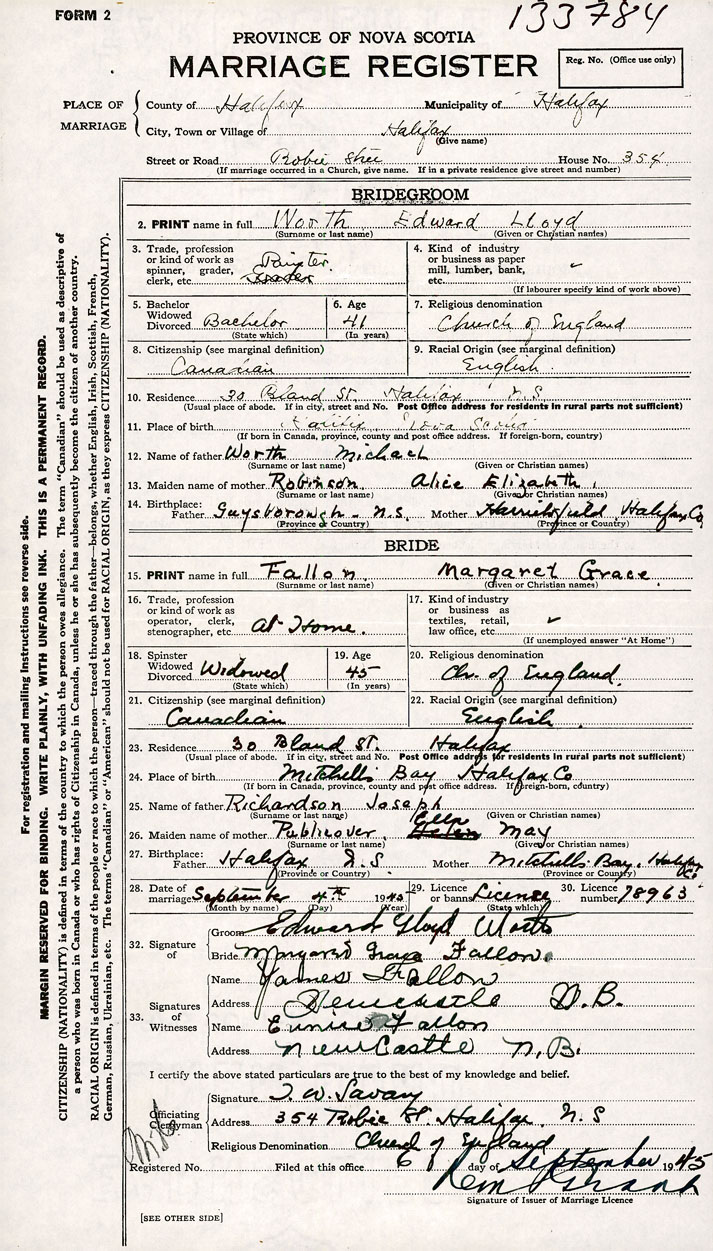 FORM 2
133784
PROVINCE OF NOVA SCOTIA
MARRIAGE REGISTER
Reg. No. (Office use only)
PLACE OF MARRIAGE
County of Halifax Municipality of Halifax
City, Town or Village of Halifax
(Give name)
Street or Road Robie Stree House No. 354
(If marriage occurred in a Church, give name. If in a private residence give street and number)
BRIDEGROOM
2. PRINT name in full Worth Edward Lloyd
(Surname or last name) (Given or Christian names)
3. Trade, profession or kind of work as spinner, grader, clerk, etc.
4. Kind of industry or business as paper mill, lumber, bank, etc. ✓
(If labourer specify kind of work above)
5. Bachelor Widowed Divorced Bachelor
(State which)
6. Age 41
(In years)
7. Religious denomination
Church of England
8. Citizenship (see marginal definition)
Canadian
9. Racial Origin (see marginal definition)
English
10. Residence 30 Bland St. Halifax N.S.
(Usual place of abode. If in city, street and No. Post Office address for residents in rural parts not sufficient)
11. Place of birth Halifax Nova Scotia
(If born in Canada, province, county and post office address. If foreign-born, country)
12. Name of father Worth Michael
(Surname or last name) (Given or Christian names)
13. Maiden name of mother Robinson Alice Elizabeth
(Surname or last name) (Given or Christian names)
14. Birthplace: Father Guysborough N.S. Mother Harrietsfield, Halifax Co.
(Province or Country) (Province or Country)
BRIDE
15. PRINT name in full Fallon Margaret Grace
(Surname or last name) (Given or Christian names)
16. Trade, profession or kind of work as operator, clerk, stenographer, etc. At Home.
17. Kind of industry or business as textiles, retail, law office, etc. ✓
(If unemployed answer "At Home")
18. Spinster Widowed Divorced Widowed
(State which)
19. Age 45
(In years)
20. Religious denomination
Ch. of England.
21. Citizenship (see marginal definition)
Canadian
22. Racial Origin (see marginal definition)
English
23. Residence 30 Bland St. Halifax
(Usual place of abode. If in city, street and No. Post Office address for residents in rural parts not sufficient)
24. Place of birth Mitchells Bay Halifax Co
(If born in Canada, province, county and post office address. If foreign-born, country)
25. Name of father Richardson Joseph
(Surname or last name) (Given or Christian names)
26. Maiden name of mother Publicover, Ellen Helen May
(Surname or last name) (Given or Christian names)
27. Birthplace: Father Halifax N.S. Mother Mitchells Bay, Halifax Co.
(Province or Country) (Province or Country)
28. Date of marriage September 4th 1945
(Month by name) (Day) (Year)
29. Licence or banns License
(State which)
30. Licence number 78963
32. Signature of
Groom Edward Lloyd Worth
Bride Margaret Grace Fallon.
33. Signatures of Witnesses
Name James Fallon
Address Newcastle N.B.
Name Eunice Fallon
Address NewCastle N.B.
I certify the above stated particulars are true to the best of my knowledge and belief.
Officiating Clergyman
Signature T. W. Savary
Address 354 Robie St. Halifax, N.S
Religious Denomination Church of England
Registered No. Filed at this office 6 day of September 1945
Signature of Issuer of Marriage Licence
[SEE OTHER SIDE]
For registration and mailing instructions see reverse side.
MARGIN RESERVED FOR BINDING. WRITE PLAINLY, WITH UNFADING INK. THIS IS A PERMANENT RECORD.
CITIZENSHIP (NATIONALITY) is defined in terms of the country to which the person owes allegiance. The term "Canadian" should be used as descriptive of
a person who was born in Canada or who has rights of Citizenship in Canada, unless he or she has subsequently become the citizen of another country.
RACIAL ORIGIN is defined in terms of the people or race to which the person—traced through the father—belongs, whether English, Irish, Scottish, French,
German, Russian, Ukrainian, etc. The terms "Canadian" or "American" should not be used for RACIAL ORIGIN, as they express CITIZENSHIP (NATIONALITY).